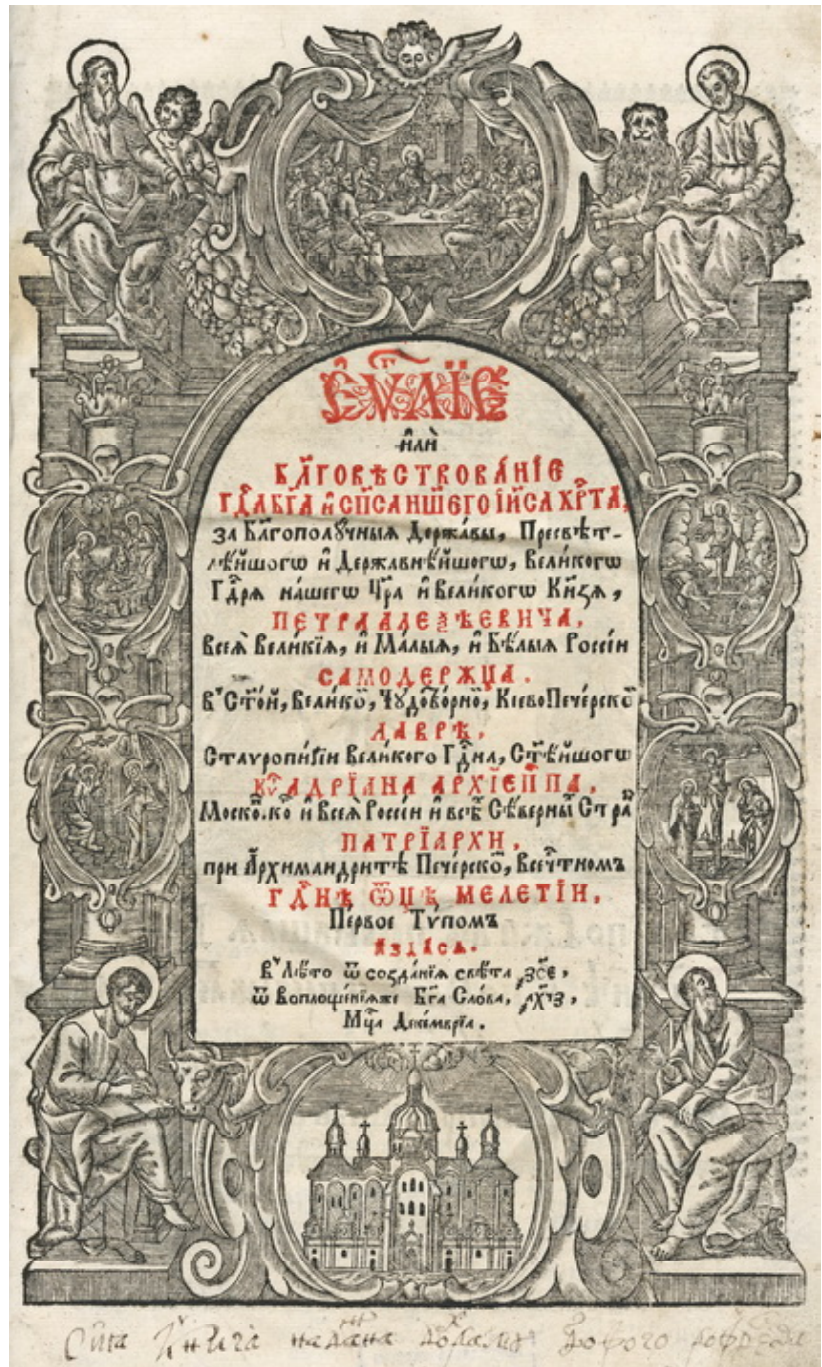 Е҆ѵⷢ҇лїе
и҆лѝ
Бл҃говѣствова́нїе
Гдⷭ҇а Бг҃а и҆ Сп҃са Ншего І҆и҃са Хрⷭ҇та̀,
за Бл҃гополꙋ́чныѧ Держа́вы, Пресвѣт-
лѣ́йшогѡ и҆ Державнѣ́йшогѡ, Вели́когѡ
Гдⷭ҇рѧ на́шегѡ Цр҃ѧ и҆ Вели́когѡ Кн҃зѧ,
ПЕТРА АЛЕѮѢЕВИЧА,
всеѧ̀ Вели́кїѧ, и҆ Ма́лыѧ, и҆ Бѣ́лыѧ Россі́и
САМОДЕРЖЦА.
в̾ Ст҃о́й, Вели́коⷨ, Чꙋдотво́рноⷨ, Кїево Пече́рскоⷨ
ЛАВРѢ,
Ставропи́гїи Вели́кого Гдⷭ҇на, Ст҃ѣ́йшогѡ
Кѵⷬ҇ АДРЇАНА АРХЇЕП҃ПА,
Моско́вⷭ҇ко и҆ всеѧ̀ Россі́и и҆ всѣⷯ Сѣ́верныⷯ Страⷩ
ПАТРЇАРХИ,
при А҆рхимандри́тѣ Пече́рскоⷨ, Всечⷭ҇тномъ
ГДⷭ҇НѢ Ѿцѣ МЕЛЕТЇИ,
Пе́рвое Тѵ́помъ
и҆здасѧ.
в̾ Лѣ́то ѿ созда́нїѧ свѣ́та ҂зсе,
ѿ Воплоще́нїѧже Бг҃а Сло́ва, ҂ахчз,
Мцⷭ҇а Деке́мврїа.
Книга надана